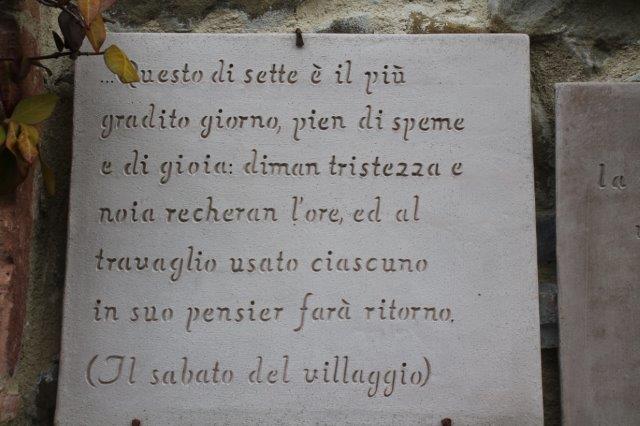 ...Questo di sette è il più
gradito giorno, pien di speme
e di gioia: diman tristezza e
noia recheran l'ore, ed al
travaglio usato ciascuno
in suo pensier farà ritorno.
(Il sabato del villaggio)
la